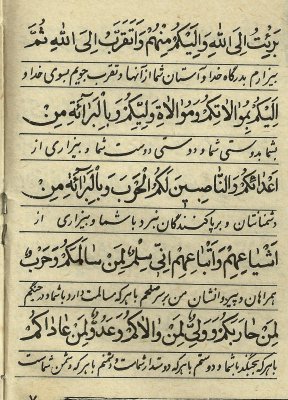 بَرِئْتُ اِلَى اللهِ وَاِلَيْكُمْ مِنْهُمْ وَاَتَقَرَّبُ اِلَى اللهِ ثُمَّ
بیزارم بدرگاه خدا و آستان شما از آنها و تقرب جویم بسوی خدا و
اِلَيْكُمْ بِمُوالاتِكُمْ وَمُوالاةِ وَلِيِّكُمْ وَبِالْبَرائَةِ مِنْ
بشما بدوستی شما و دوستی دوست شما و بیزاری از
اَعْدائِكُمْ وَالنّاصِبينَ لَكُمُ الْحَرْبَ وَبِالْبَرائَةِ مِنْ
دشمنانتان و برپاکنندگان نبرد با شما و بیزاری از
اَشْياعِهِمْ وَاَتْباعِهِمْ اِنّى سِلْمٌ لِمَنْ سالَمَكُمْ وَحَرْبٌ
همراهان و پیروانشان من در صلحم با هر که مسالمت دارد با شما و در جنگم
لِمَنْ حارَبَكُمْ وَوَلِىٌّ لِمَنْ والاكُمْ وَعَدُوٌّ لِمَنْ عاداكُمْ
با هر که بجنگد با شما و دوستم با هر که دوستدار شماست و دشمنم با هر که دشمن شماست